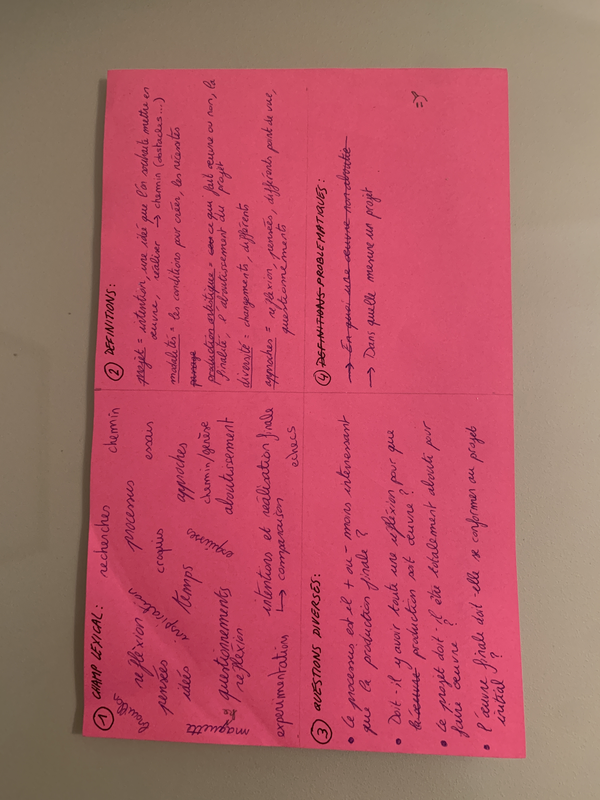 ① CHAMP LEXICAL:
recherches
chemin
brouillon
réflexion
inspiration
processus
essais
pensées
croquis
idées
temps
approches
esquisses
chemin/genèse
maquette
questionnements
aboutissement
réflexion
experimentation
intentions et réalisation finale
↳ comparaison
échecs
② DEFINITIONS:
projet = intention, une idée que l'on souhaite mettre en
œuvre, réaliser → chemin (obstacles...)
modalités = les conditions pour créer, les nécessités
passage
production artistique = ce qui fait œuvre ou non, la
finalité, l'aboutissement du projet
diversité = changements, différents
approches = réflexion, pensées, différents point de vue,
questionnements
③ QUESTIONS DIVERSES:
• Le processus est-il + ou - moins intéressant
que la production finale ?
• Doit-il y avoir toute une réflexion pour que
production soit œuvre ?
• Le projet doit-il être totalement abouti pour
faire œuvre ?
• l'œuvre finale doit-elle se conformer au projet
initial ?
④ DEFINITIONS PROBLEMATIQUES:
→ En quoi une œuvre non aboutie
→ Dans quelle mesure un projet
=>